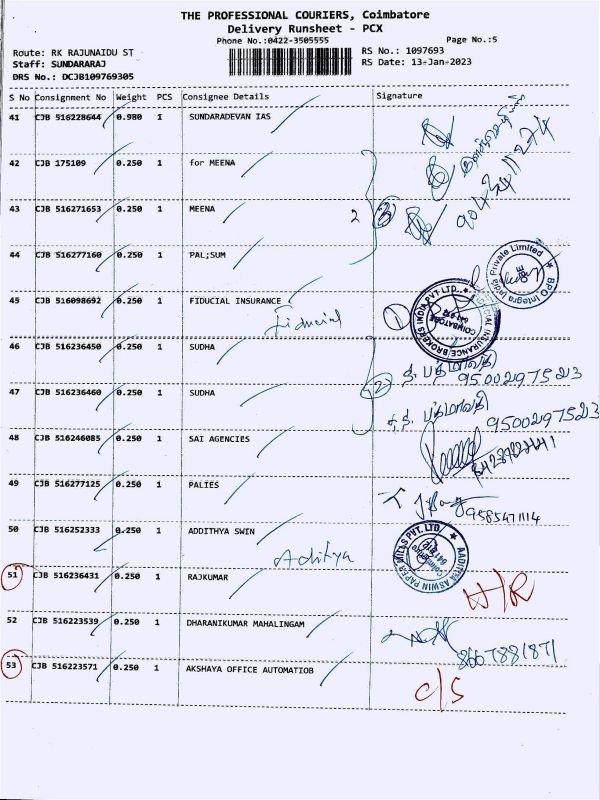 THE PROFESSIONAL COURIERS, Coimbatore
Delivery Runsheet - PCX
Phone No.:0422-3505555
Page No.:5
Route: RK RAJUNAIDU ST
RS No.: 1097693
Staff: SUNDARARAJ
RS Date: 13-Jan-2023
DRS No.: DCJB109769305
S No Consignment No Weight PCS Consignee Details Signature
41 CJB 516228644 0.980 1 SUNDARADEVAN IAS
42 CJB 175109 0.250 1 for MEENA
43 CJB 516271653 0.250 1 MEENA
2 3
44 CJB 516277160 0.250 1 PAL;SUM
BPO Integra India Private Limited
45 CJB 516098692 0.250 1 FIDUCIAL INSURANCE
Fiducial 1
46 CJB 516236450 0.250 1 SUDHA
2 த. பத்மாவதி 9500297523
47 CJB 516236460 0.250 1 SUDHA
பத்மாவதி 9500297523
48 CJB 516246085 0.250 1 SAI AGENCIES
49 CJB 516277125 0.250 1 PALIES
50 CJB 516252333 0.250 1 ADDITHYA SWIN
Aditya
AADITYA ASWIN PAPER MILLS PVT. LTD.
51 CJB 516236431 0.250 1 RAJKUMAR
52 CJB 516223539 0.250 1 DHARANIKUMAR MAHALINGAM
8667881871
53 CJB 516223571 0.250 1 AKSHAYA OFFICE AUTOMATIOB
C/S